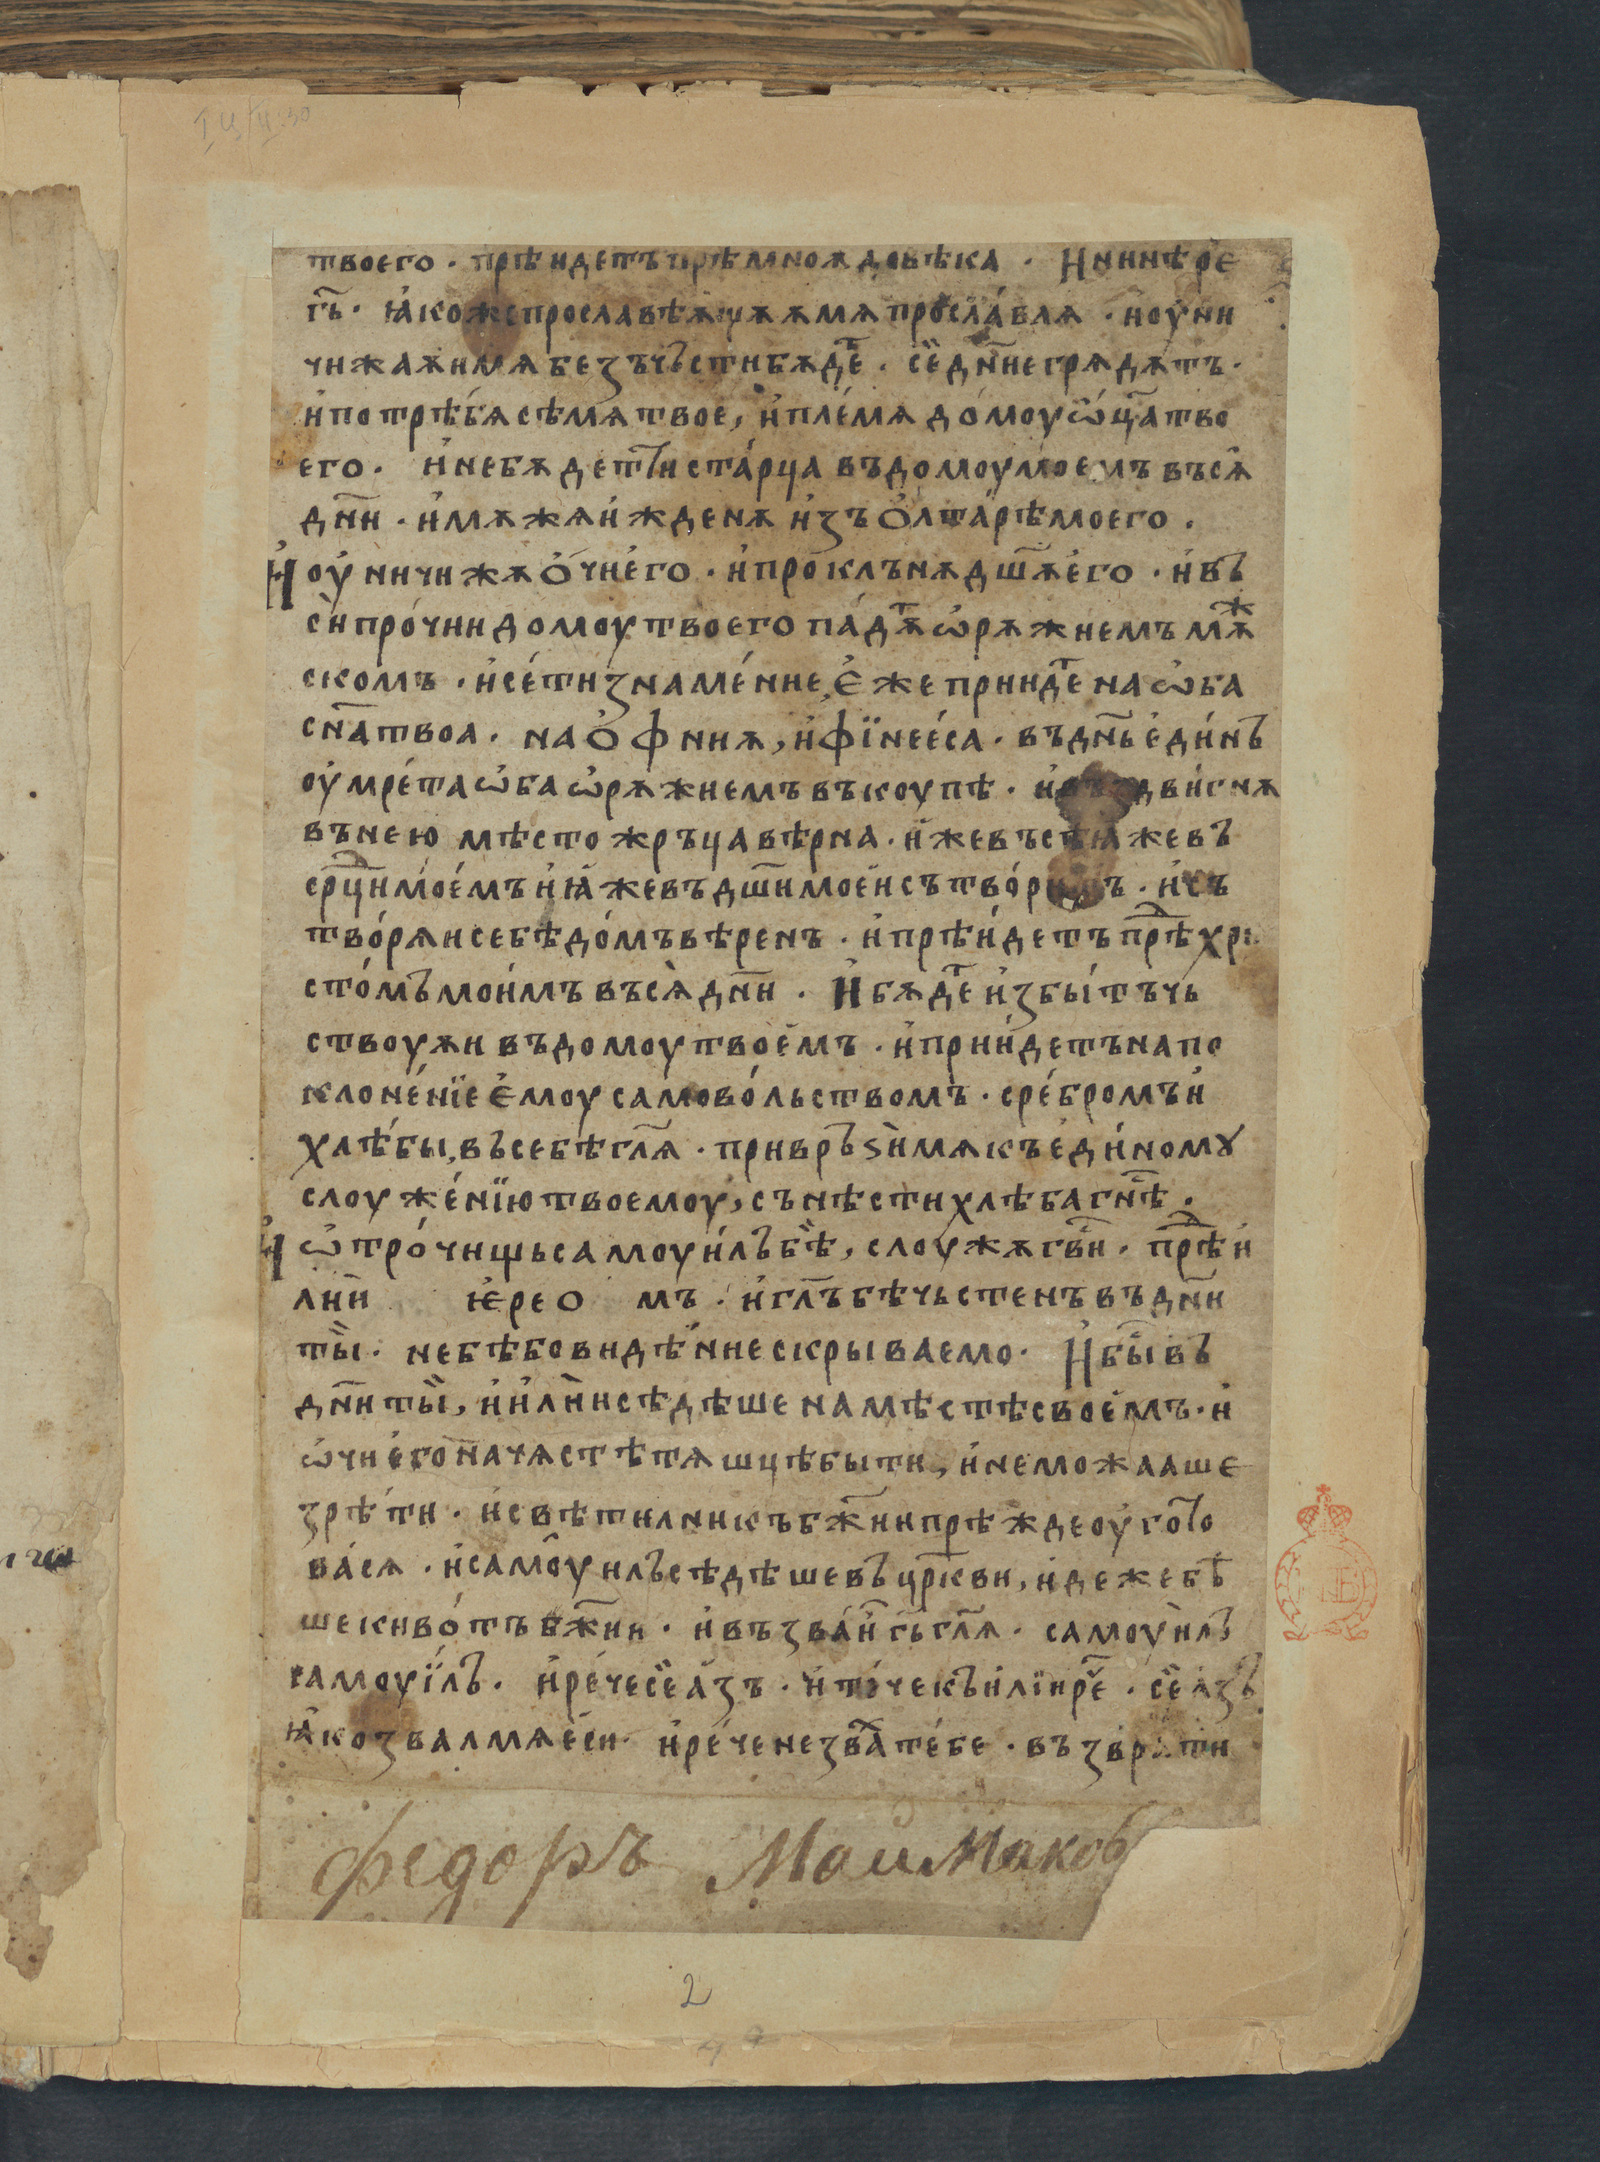 твоего · прѣидетъ прѣмноѫ до вѣка · Н нинѣ р҇е
г҃ь · ꙗ҆коже прославѣѧщѫѧ мѧ прославлѧ · и҆ оу҆ни
чижаѫи мѧ безъ чьсти бѫдет · се дн҃ие грѧдѫтъ ·
и҆ потрѣбѧ сѣмѧ твое, и҆ племѧ домоу ѿц҃а тво
его · и҆ не бѫдет ти старца въ домоу моемъ въсѧ
дн҃и · и҆ мѫжѧ и҆жденѫ и҆зъ ѻлтарѣ моего ·
И҆ оу҆ничижѫ ѻчи е҆го · и҆ проклънѫ дш҃ѫ е҆го · и҆ въ
си прочии домоу твоего падѫт ѡ҆рѫжиемъ мѫж
скомъ · и҆ се ти знамение, є҆же приидет на ѡба
сн҃а твоа · на ѻфниѫ, и҆ фїнееса · въ дн҃ь е҆динъ
оу҆мрета ѡ҆ба ѡ҆рѫжиемъ въкоупѣ · и҆ въздвигнѫ
въ нею мѣсто жръца вѣрна · иже въсѣꙗже въ
ср҃дци моемъ и҆ ꙗ҆же въ дш҃и моеи сътворитъ · и҆ съ
творѫ и себѣ домъ вѣренъ · и҆ прѣидетъ прѣд хри
стомъ моимъ въсѧ дн҃и · И҆ бѫдет и҆збытъчь
ствоуѫи въ домоу твоемъ · и҆ приидетъ на по
клоненїе є҆моу самовольствомъ · сребромъ и҆
хлѣбы, въ себѣ гл҃ѧ · приврьѕи мѧ къ е҆диномꙋ
слоуженїю твоемоу, сънѣсти хлѣба гн҃ѣ ·
И҆ ѡ҆трочищь самоуилъ бѣ, слоужѧ гв҃и · прѣд и
лии і҆ерео мъ · и҆ гл҃ъ бѣ чьстенъ въ дн҃и
ты · не бѣ бо видѣние скрываемо · И҆ бы въ
дн҃и ты, и҆ и҆лии сѣдѣше на мѣстѣ своемъ · и҆
ѡ҆чи е҆го начѧстѣ тѧшцѣ быти, и҆ не можааше
зрѣти · и҆ свѣтилникъ бж҃ии прѣжде оу҆гото
васѧ · и҆ самоуилъ сѣдѣше въ црк҃ви, и҆деже бѣ
ше кивотъ бж҃ии · и҆ възва и҆ гь҃ гл҃ѧ · самоуилъ
самоуїлъ · и҆ рече се азъ · и҆ тече къ и҆лїи ре҃ · се азъ
ꙗ҆ко звал мѧ еси и҆ рече не звах тебе · възврати
федоръ Маимаков
2